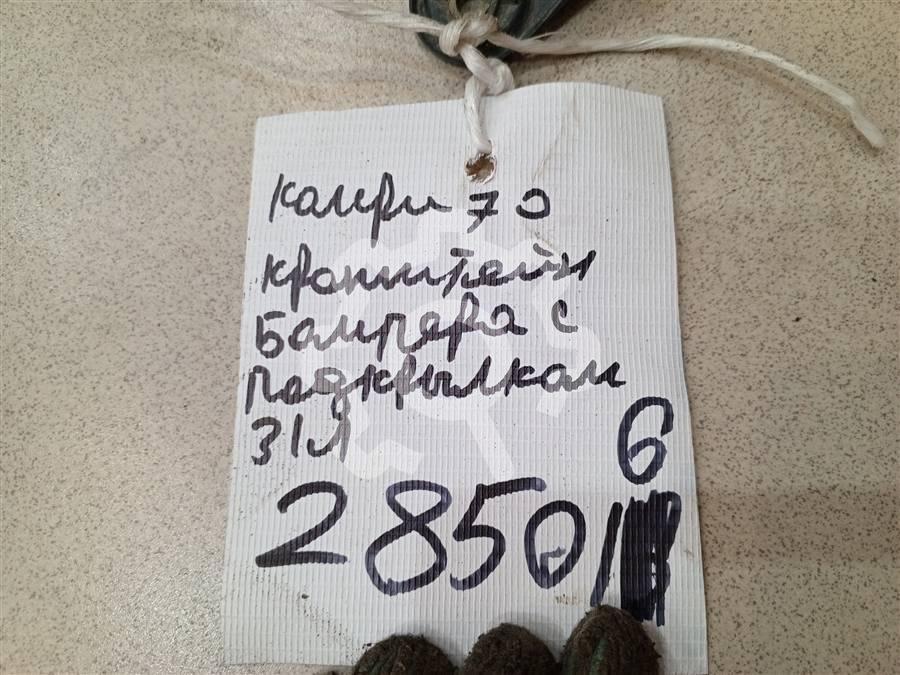 Камри 70
кронштейн
Бампера с
подкрылкам
З/Л
6
2850/